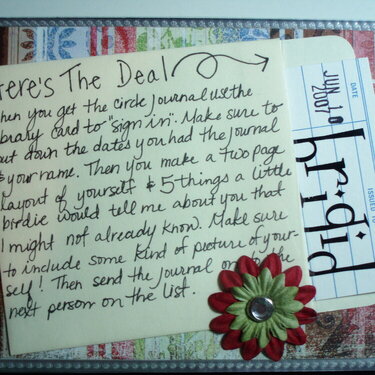 Here's The Deal
When you get the circle journal use the
library card to "sign in". Make sure to
put down the dates you had the journal
& your name. Then you make a two page
layout of yourself & 5 things a little
birdie would tell me about you that
I might not already know. Make sure
to include some kind of picture of your-
self! Then send the journal on to the
next person on the list.
DATE
ISSUED TO
JUN 10 2007
brigid